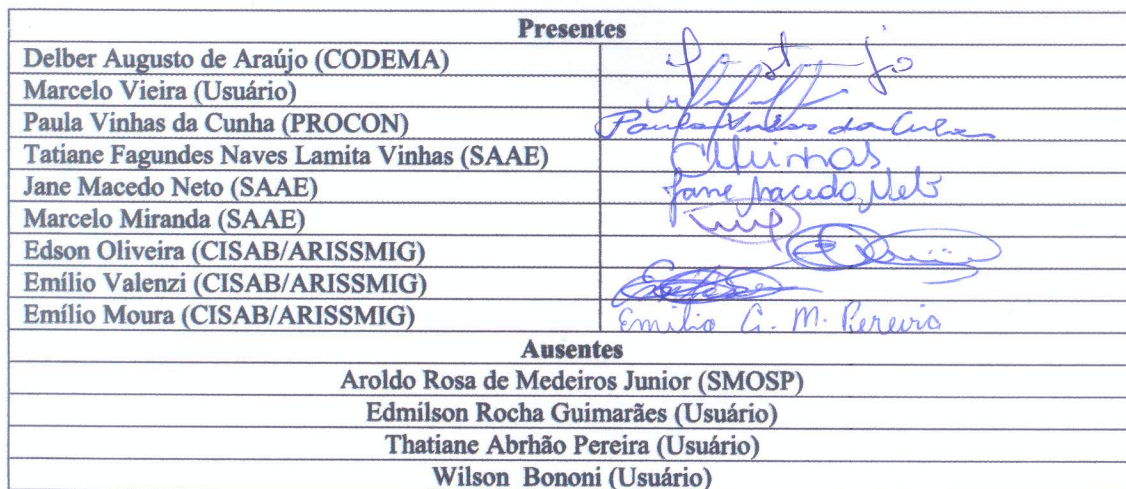 Presentes
Delber Augusto de Araújo (CODEMA)
Marcelo Vieira (Usuário)
Paula Vinhas da Cunha (PROCON) Paula Vinhas da Cunha
Tatiane Fagundes Naves Lamita Vinhas (SAAE)
Jane Macedo Neto (SAAE) Jane Macedo Neto
Marcelo Miranda (SAAE)
Edson Oliveira (CISAB/ARISSMIG)
Emílio Valenzi (CISAB/ARISSMIG)
Emílio Moura (CISAB/ARISSMIG) Emilio G. M. Pereira
Ausentes
Aroldo Rosa de Medeiros Junior (SMOSP)
Edmílson Rocha Guimarães (Usuário)
Thatiane Abrhão Pereira (Usuário)
Wilson Bononi (Usuário)